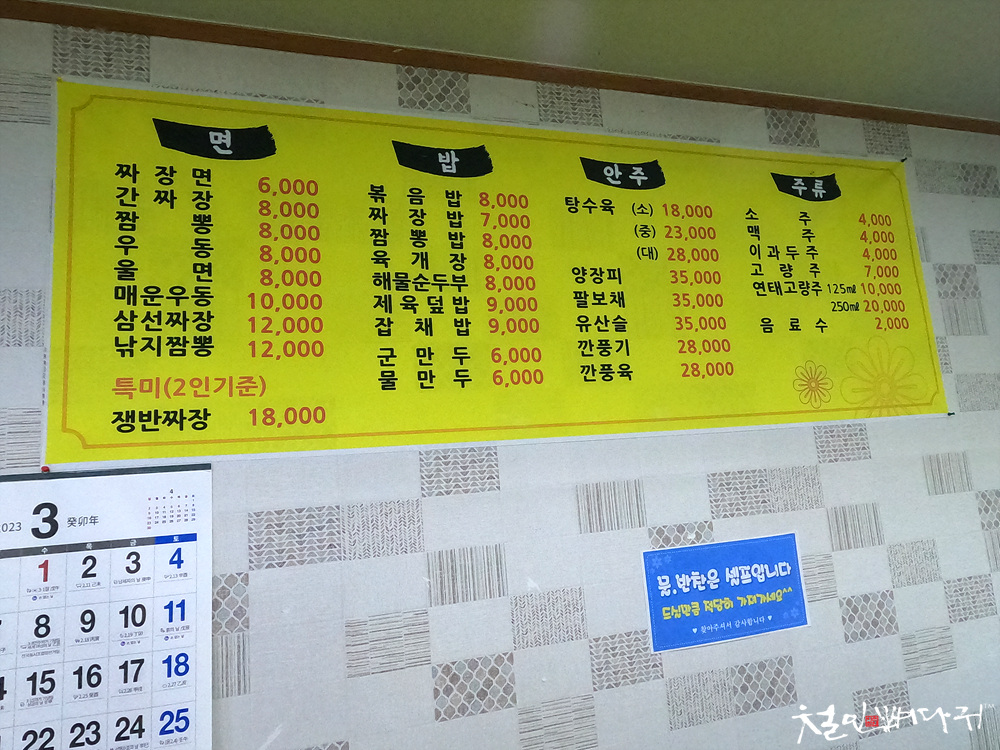 면
짜장면 6,000
간짜장 8,000
짬뽕 8,000
우동 8,000
울면 8,000
매운우동 10,000
삼선짜장 12,000
낚지짬뽕 12,000
특미(2인기준)
쟁반짜장 18,000
밥
볶음밥 8,000
짜장밥 7,000
짬뽕밥 8,000
육개장 8,000
해물순두부 8,000
제육덮밥 9,000
잡채밥 9,000
군만두 6,000
물만두 6,000
안주
탕수육 (소) 18,000
(중) 23,000
(대) 28,000
양장피 35,000
팔보채 35,000
유산슬 35,000
깐풍기 28,000
깐풍육 28,000
주류
소주 4,000
맥주 4,000
이과두주 4,000
고량주 7,000
연태고량주 125㎖ 10,000
250㎖ 20,000
음료수 2,000
2023 3 癸卯年
4
수 목 금 토
1 2 3 4
8 9 10 11
15 16 17 18
22 23 24 25
물,반찬은 셀프입니다
드실만큼 적당히 가져가세요^^
♥ 찾아주셔서 감사합니다 ♥
철인뼈다귀